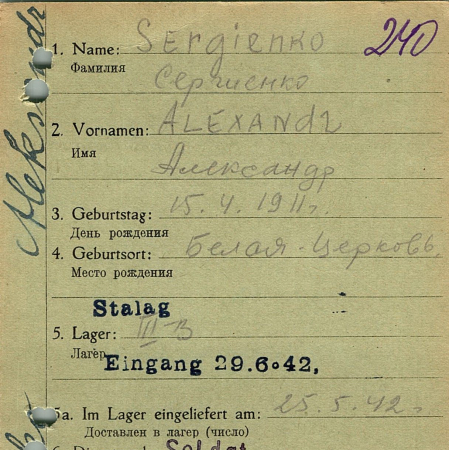 Aleksandr
240
1. Name: Sergienko
Фамилия
Сергиенко
2. Vornamen: ALEXANDR
Имя
Александр
3. Geburtstag: 15. 4. 1911 г.
День рождения
4. Geburtsort: Белая-Церковь.
Место рождения
Stalag
5. Lager: III-B
Лагерь
Eingang 29.6.42,
5a. Im Lager eingeliefert am: 25. 5. 42 г.
Доставлен в лагерь (число)
Soldat